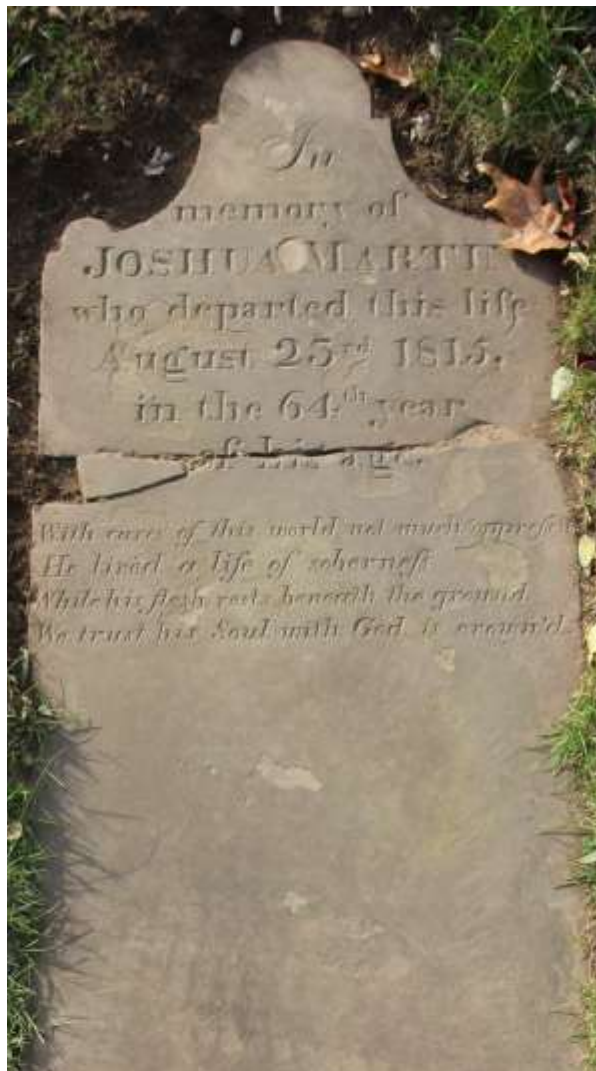 In
memory of
JOSHUA MARTIN
who departed this life
August 23rd 1815.
in the 64th year
of his age.
With cares of this world not much oppress'd
He lived a life of soberness
While his flesh rests beneath the ground.
We trust his Soul with God is crown'd.